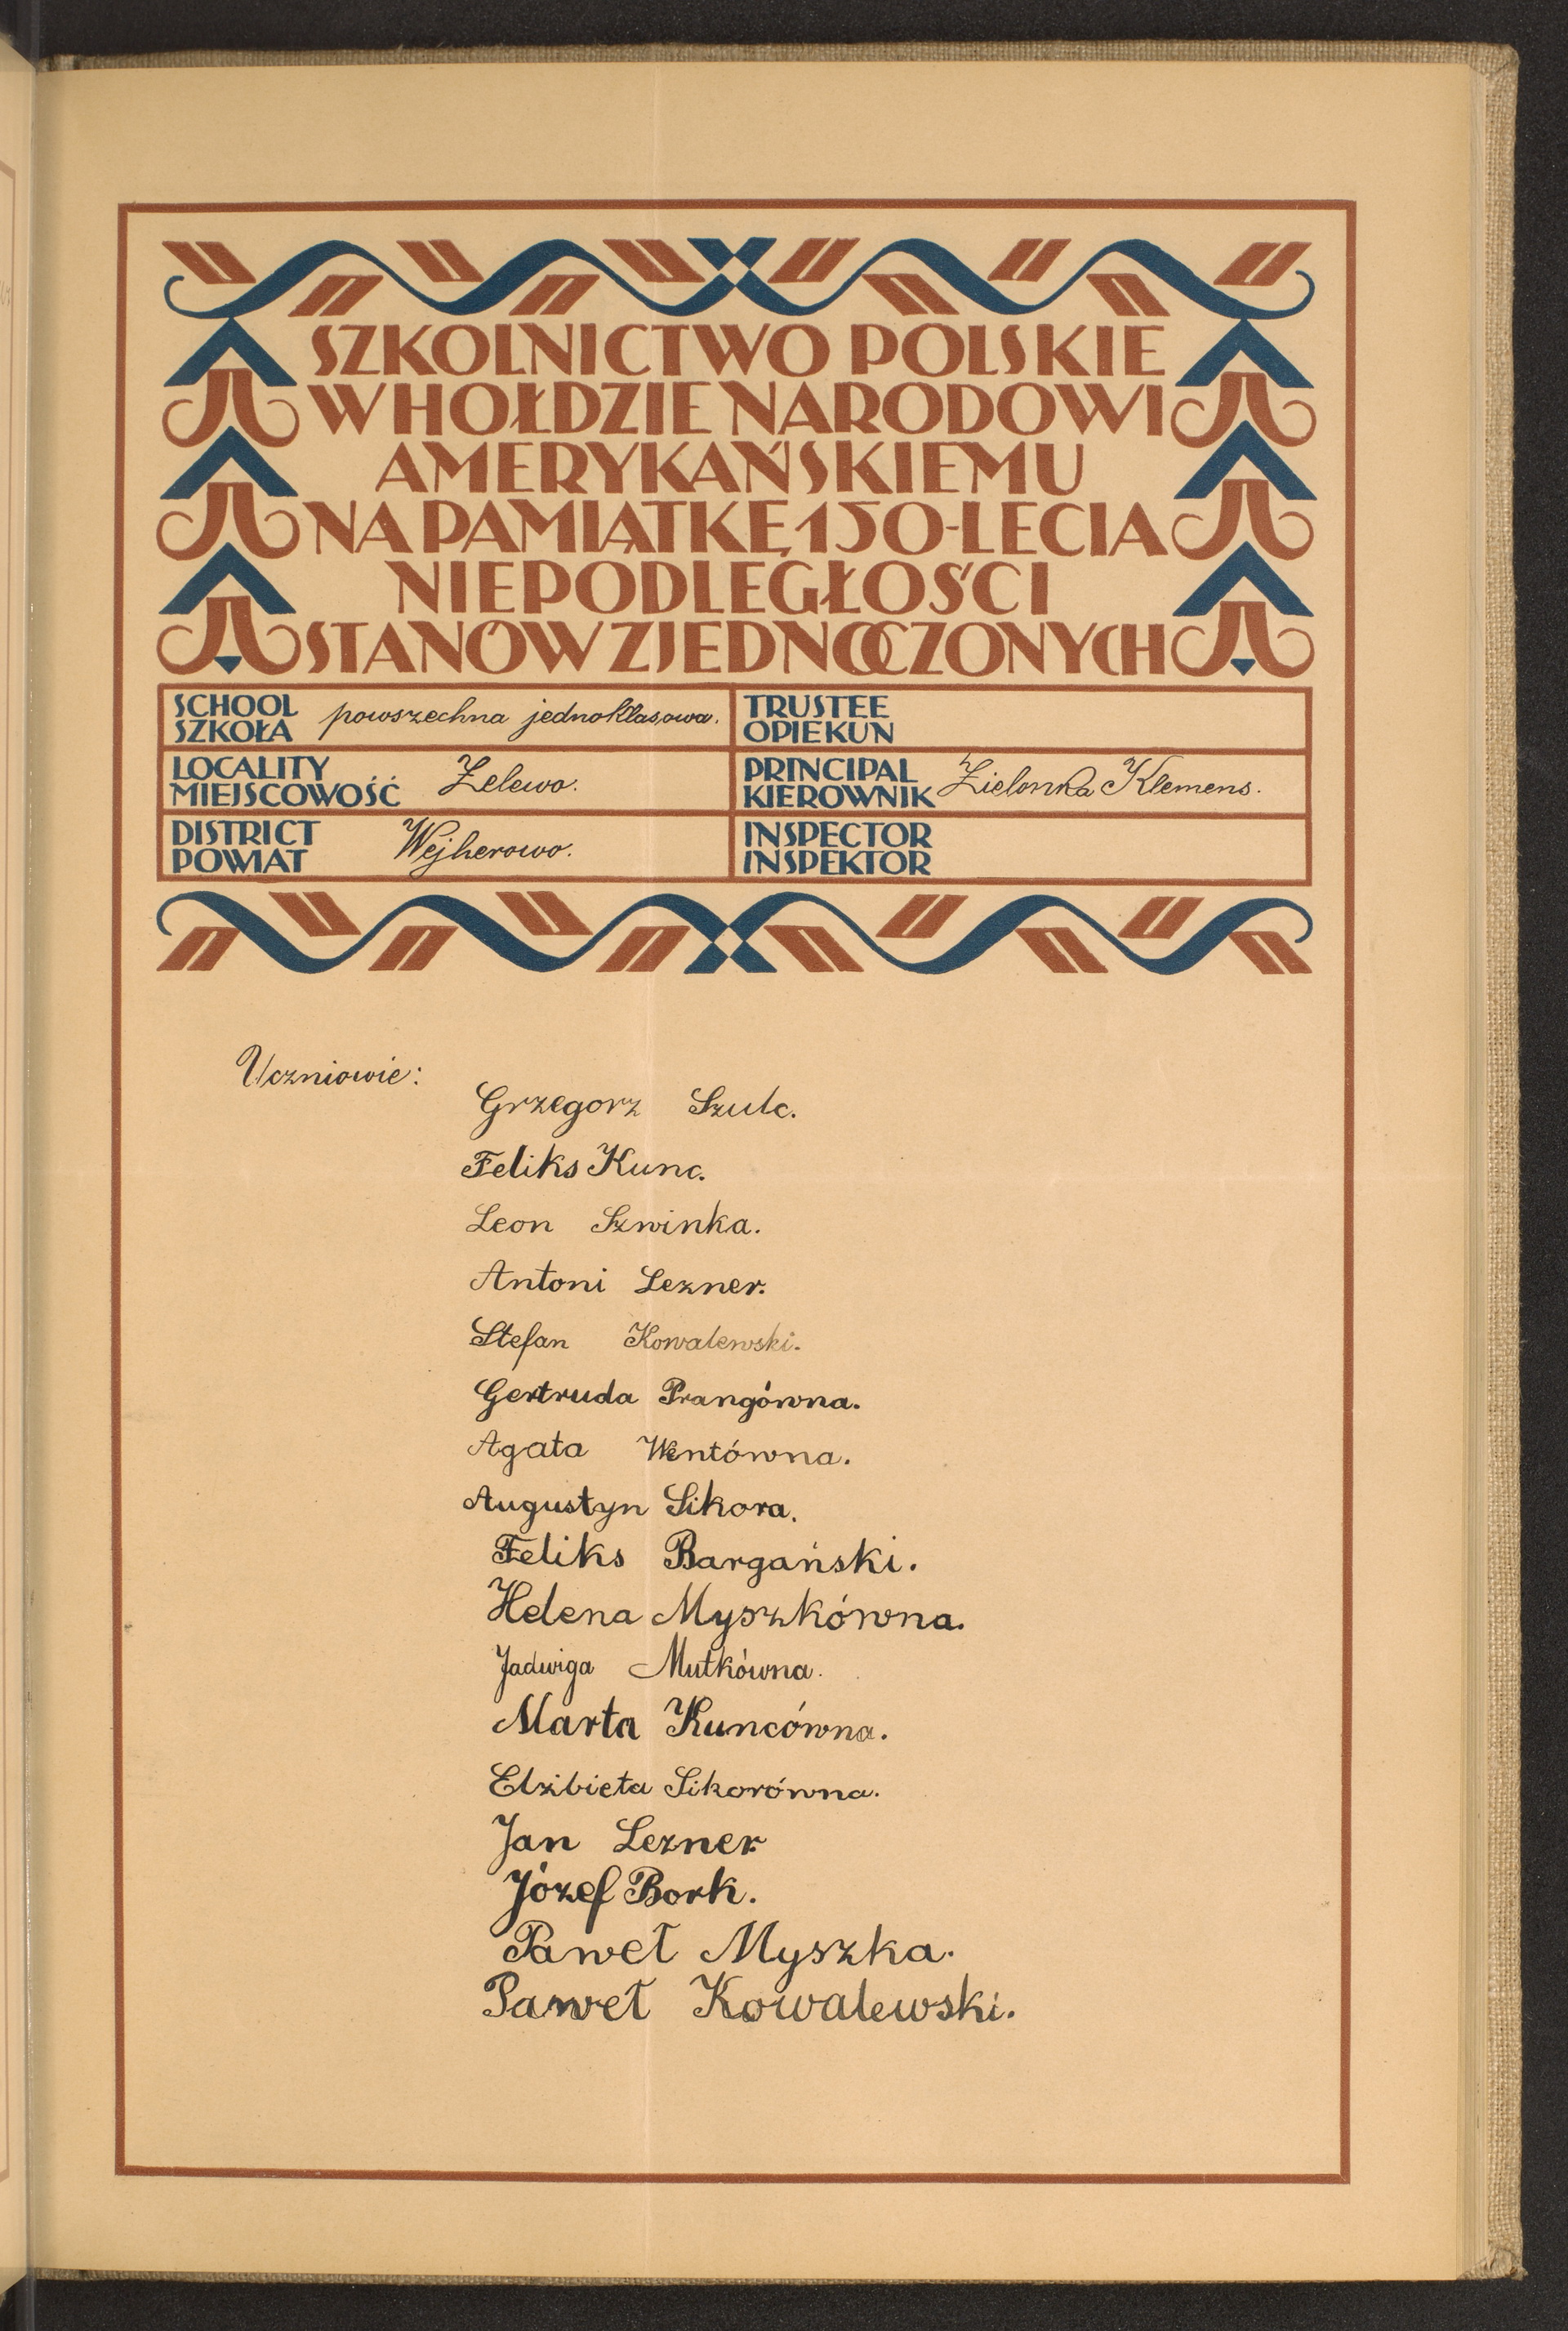 SZKOLNICTWO POLSKIE
W HOŁDZIE NARODOWI
AMERYKAŃSKIEMU
NA PAMIĄTKĘ 150-LECIA
NIEPODLEGŁOŚCI
STANÓW ZJEDNOCZONYCH
SCHOOL
SZKOŁA powszechna jednoklasowa.
TRUSTEE
OPIEKUN
LOCALITY
MIEJSCOWOŚĆ Zelewo.
PRINCIPAL
KIEROWNIK Zielonka Klemens.
DISTRICT
POWIAT Wejherowo.
INSPECTOR
INSPEKTOR
Uczniowie:
Grzegorz Szulc.
Feliks Kunc.
Leon Szwinka.
Antoni Lezner.
Stefan Kowalewski.
Gertruda Prangówna.
Agata Wentówna.
Augustyn Sikora.
Feliks Bargański.
Helena Myszkówna.
Jadwiga Mutkówna.
Marta Kuncówna.
Elzibieta Sikorówna.
Jan Lezner
Józef Bork.
Paweł Myszka.
Paweł Kowalewski.